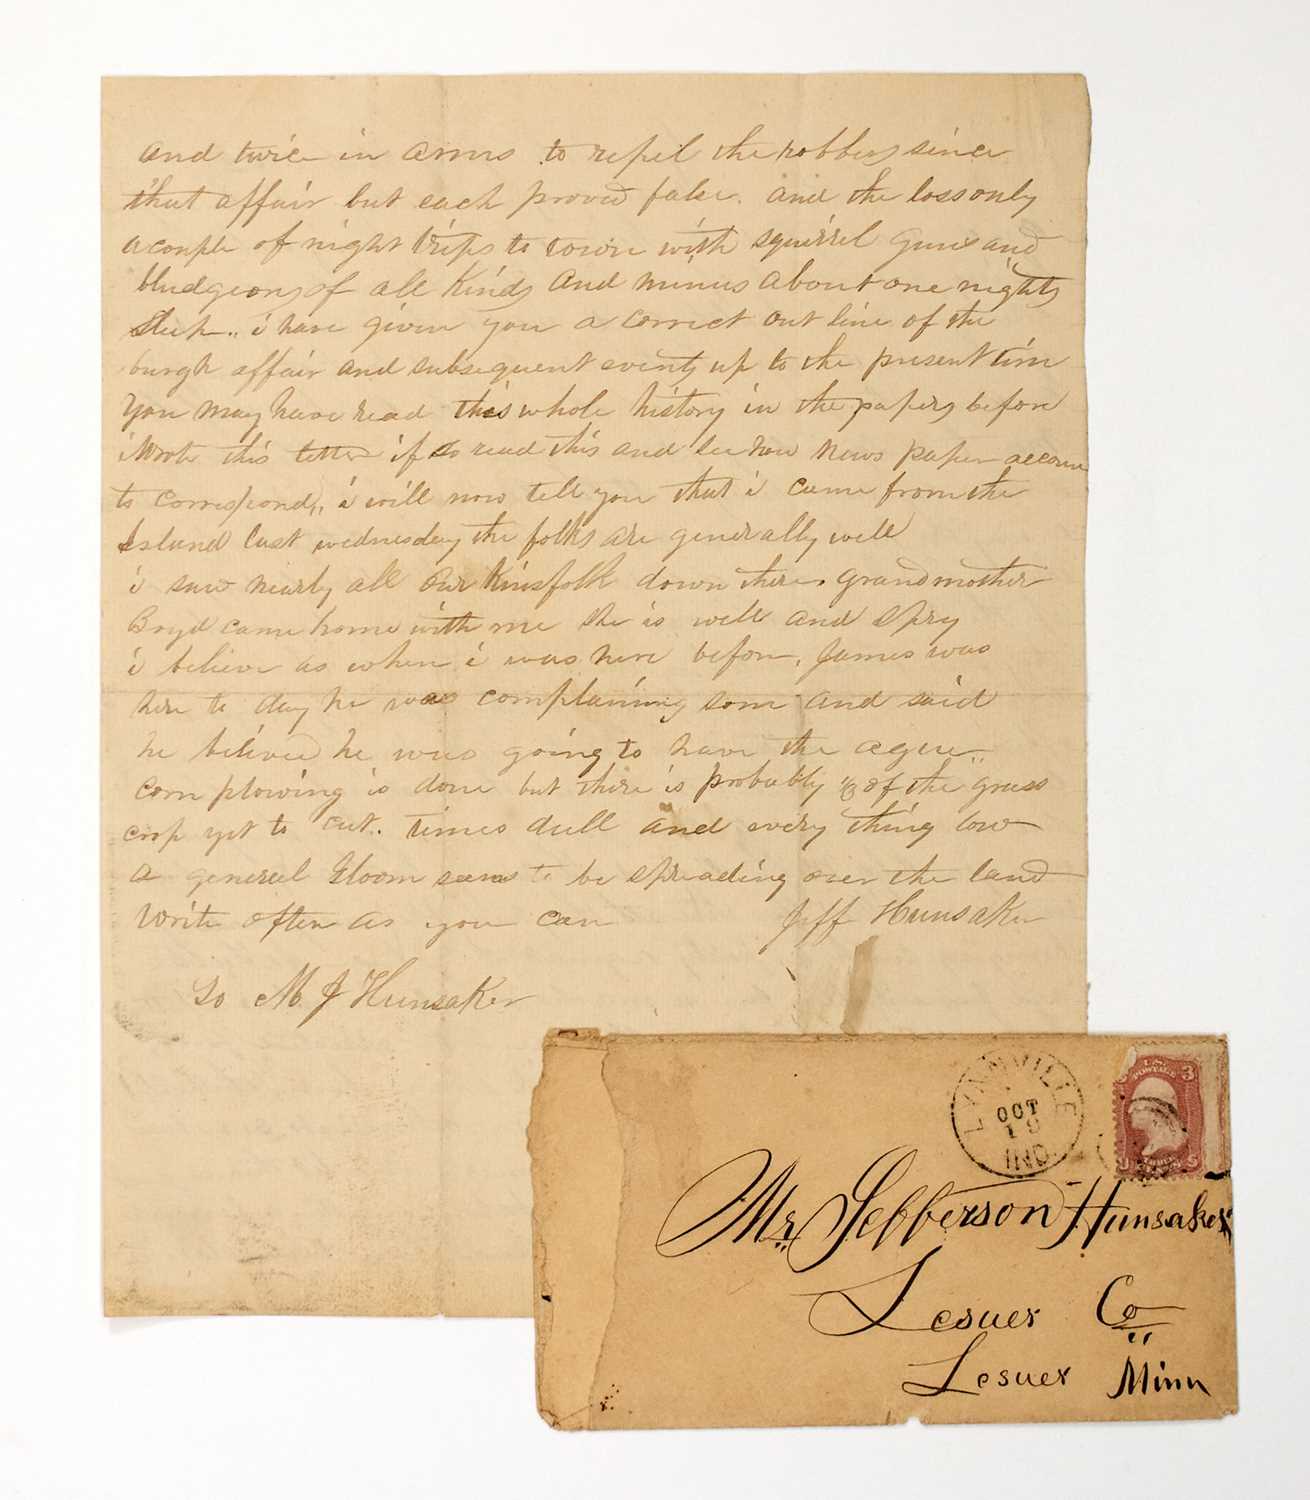 and twice in arms to repel the robbers since
that affair but each proved false. and the loss only
a couple of night trips to town with squirrel guns and
bludgeons of all kinds and minus about one nights
sleep.. i have given you a correct out line of the
burgh affair and subsequent events up to the present tim
You may have read this whole history in the papers before
i wrote this letter if so read this and see how news paper accoun
to correspond,, i will now tell you that i came from the
Island last wednesday the folks are generally well
i saw nearly all our kinsfolk down there. grandmother
Boyd came home with me she is well and spry
i believe as when i was here before, James was
here to day he was complaining som and said
he believed he was going to have the ague..
corn plowing is done but there is probably 1/3 of the grass
crop yet to cut.. times dull and every thing low
a general gloom seems to be spreading over the land
write often as you can Jeff Hunsaker
To M. J Hunsaker
LYNNVILLE
OCT
19
IND.
U.S. 3
POSTAGE
Mr. Jefferson Hunsaker
Lesuer Co
Lesuer Minn